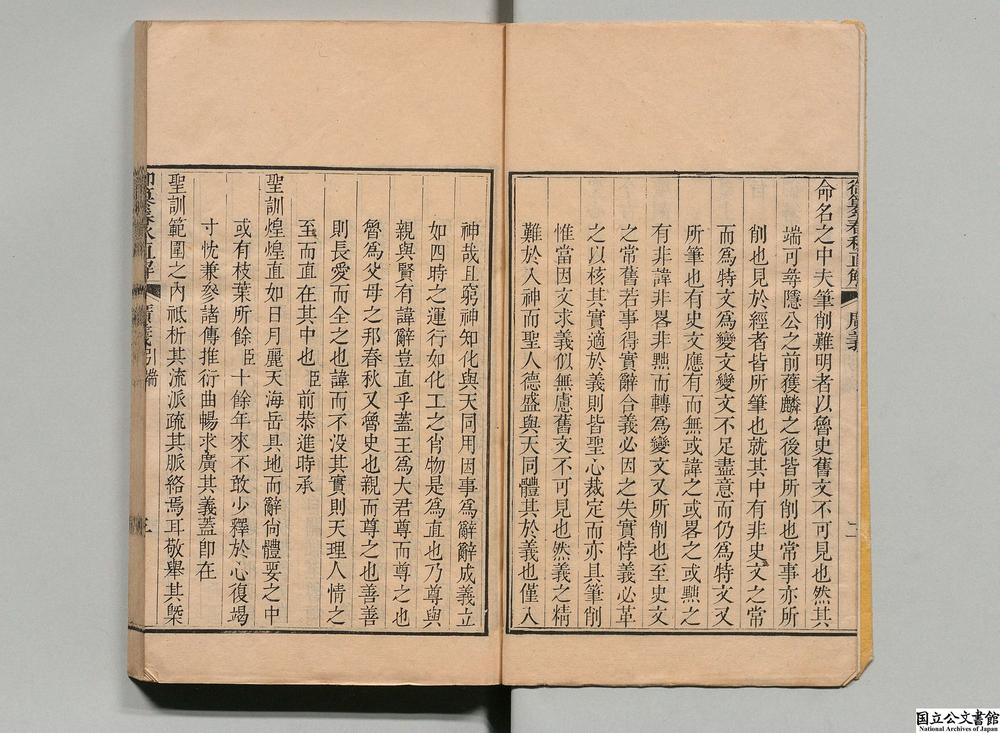 命名之中夫筆削難明者以魯史舊文不可見也然其
端可尋隱公之前獲麟之後皆所削也常事亦所
削也見於經者皆所筆也就其中有非史文之常
而爲特文爲變文變文不足盡意而仍爲特文又
所筆也有史文應有而無或諱之或畧之或㸃之
有非諱非畧非㸃而轉爲變文又所削也至史文
之常舊若事得實辭合義必因之失實悖義必革
之以核其實適於義則皆聖心裁定而亦具筆削
惟當因文求義似無慮舊文不可見也然義之精
難於入神而聖人德盛與天同體其於義也僅入
二
神哉且窮神知化與天同用因事爲辭辭成義立
如四時之運行如化工之肖物是爲直也乃尊與
親與賢有諱辭豈直乎蓋王爲大君尊而尊之也
魯爲父母之邦春秋又魯史也親而尊之也善善
則長愛而全之也諱而不没其實則天理人情之
至而直在其中也臣前恭進時承
聖訓煌煌直如日月麗天海岳具地而辭尚體要之中
或有枝葉所餘臣十餘年來不敢少釋於心復竭
寸忱兼叅諸傳推衍曲暢求廣其義蓋即在
聖訓範圍之內祇析其流派疏其脈絡焉耳敬舉其㮣
御纂春秋直解
廣義引端
三
国立公文書館
National Archives of Japan